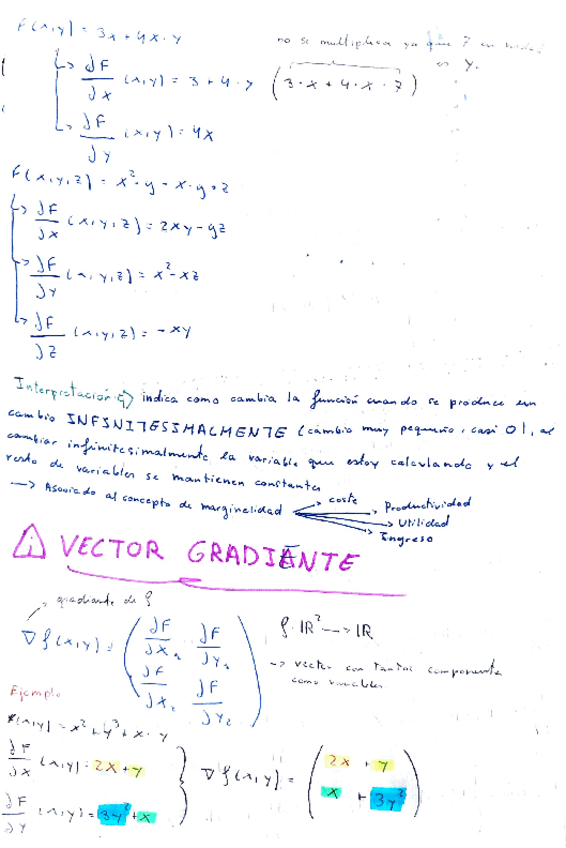 F(x,y) = 3x + 4x · y
no se multiplica ya que 7 en realidad es y.
∂F/∂x (x,y) = 3 + 4 · y (3 · x + 4 · x · 7)
∂F/∂y (x,y) = 4x
F(x,y,z) = x² · y - x · y · z
∂F/∂x (x,y,z) = 2xy - yz
∂F/∂y (x,y,z) = x² - xz
∂F/∂z (x,y,z) = -xy
Interpretación indica como cambia la función cuando se produce un
cambio INFINITESIMALMENTE (cambio muy pequeño, casi 0), al
cambiar infinitesimalmente la variable que estoy calculando y el
resto de variables se mantienen constantes
→ Asociado al concepto de marginalidad
→ coste
→ Productividad
→ Utilidad
→ Ingreso
VECTOR GRADIENTE
gradiente de f
∇f(x,y) = (∂F/∂x₁ ∂F/∂y₁
∂F/∂x₂ ∂F/∂y₂)
f: IR² → IR
→ vector con tantas componentes
como variables
Ejemplo
F(x,y) = x² + y³ + x · y
∂F/∂x (x,y) = 2x + y
∂F/∂y (x,y) = 3y² + x
∇f(x,y) = (2x + y
x + 3y²)